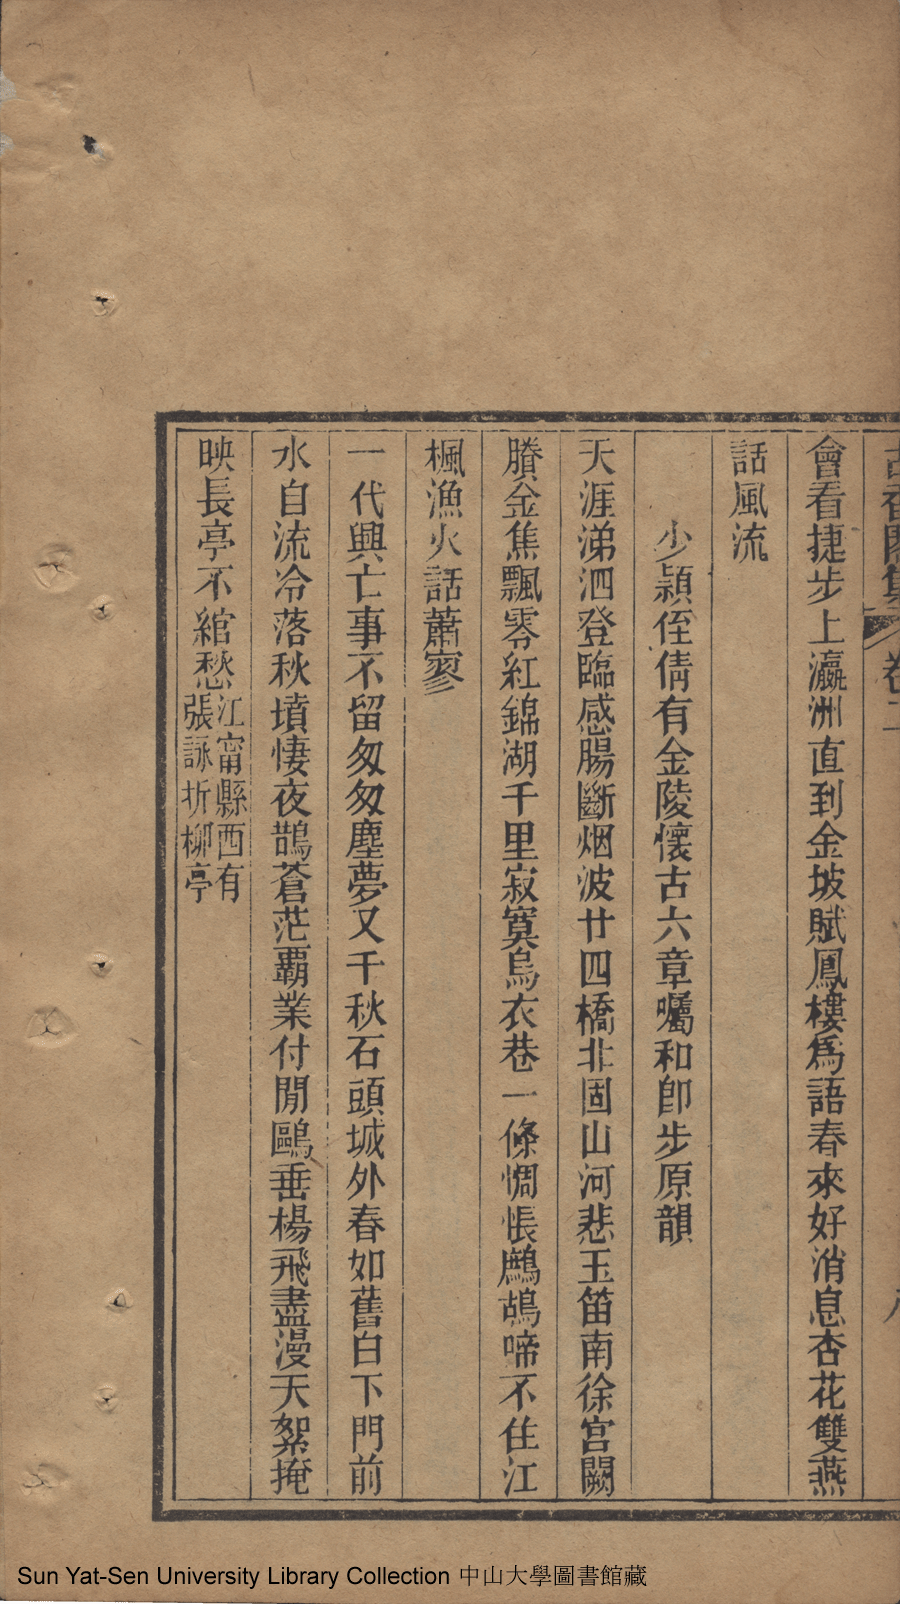 會看捷步上瀛洲直到金坡賦鳳樓爲語春來好消息杏花雙燕
話風流
少潁侄倩有金陵懷古六章囑和卽步原韻
天涯涕泗登臨感腸斷烟波廿四橋北固山河悲玉笛南徐宮闕
賸金焦飄零紅錦湖千里寂寞烏衣巷一條惆悵鷓鴣啼不住江
楓漁火話蕭寥
一代興亡事不留匆匆塵夢又千秋石頭城外春如舊白下門前
水自流冷落秋墳悽夜鵲蒼茫覇業付閒鷗垂楊飛盡漫天絮掩
映長亭不綰愁江甯縣西有
張詠折柳亭
Sun Yat-Sen University Library Collection 中山大學圖書館藏